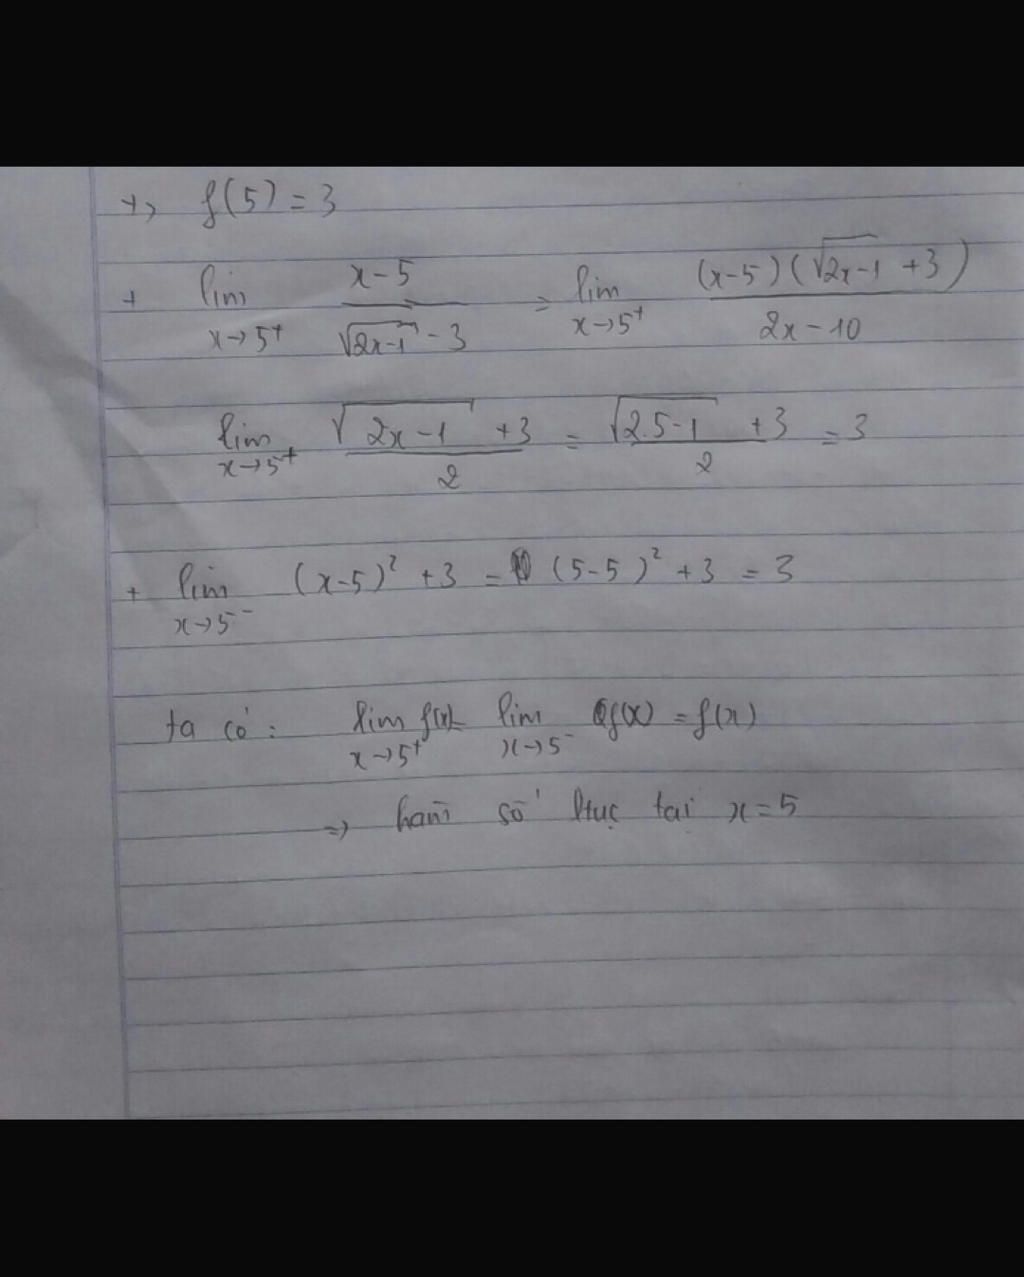 +, f(5) = 3
+ lim x→5⁺ (x-5)/(√(2x-1) - 3) = lim x→5⁺ (x-5)(√(2x-1) + 3)/(2x-10)
lim x→5⁺ (√(2x-1) + 3)/2 = (√(2.5-1) + 3)/2 = 3
+ lim x→5⁻ (x-5)² + 3 = (5-5)² + 3 = 3
ta có: lim x→5⁺ f(x) = lim x→5⁻ f(x) = f(x)
=> hàm số ltục tại x = 5